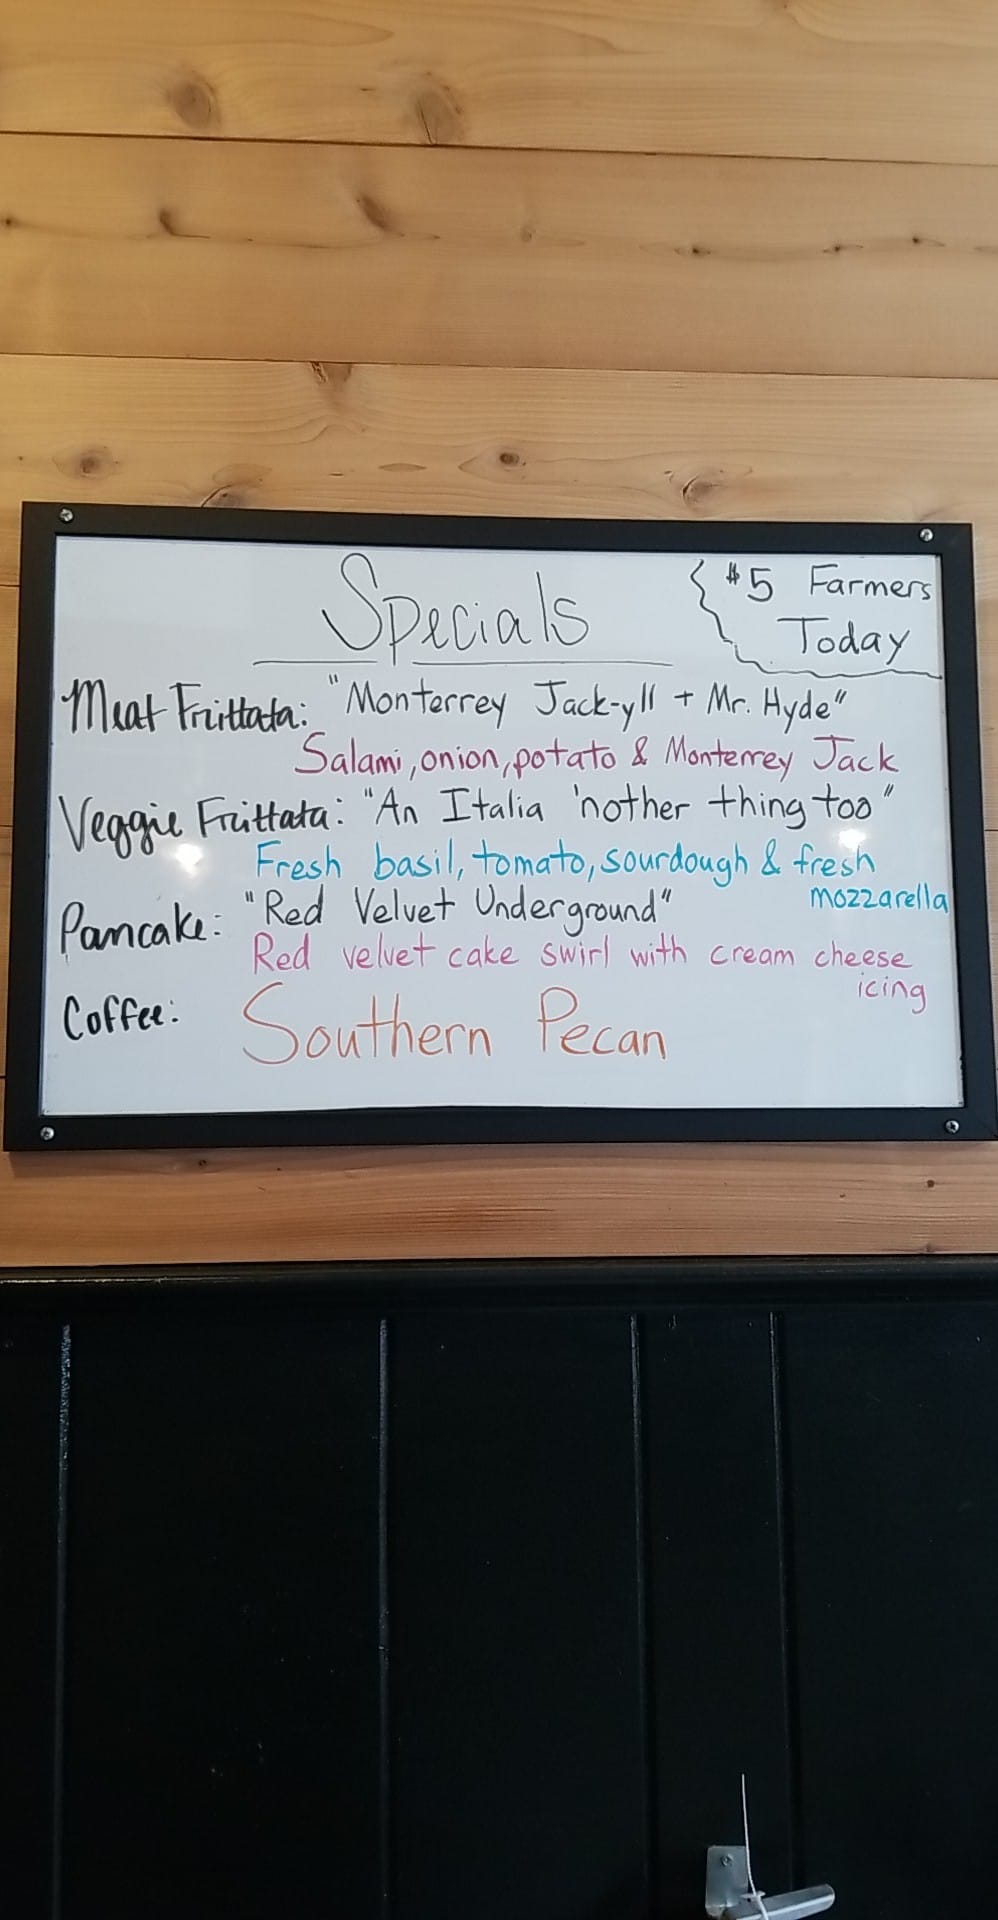 Specials
$5 Farmers
Today
Meat Frittata: "Monterrey Jack-yll + Mr. Hyde"
Salami, onion, potato & Monterrey Jack
Veggie Frittata: "An Italia 'nother thing too"
Fresh basil, tomato, sourdough & fresh
mozzarella
Pancake: "Red Velvet Underground"
Red velvet cake swirl with cream cheese
icing
Coffee: Southern Pecan